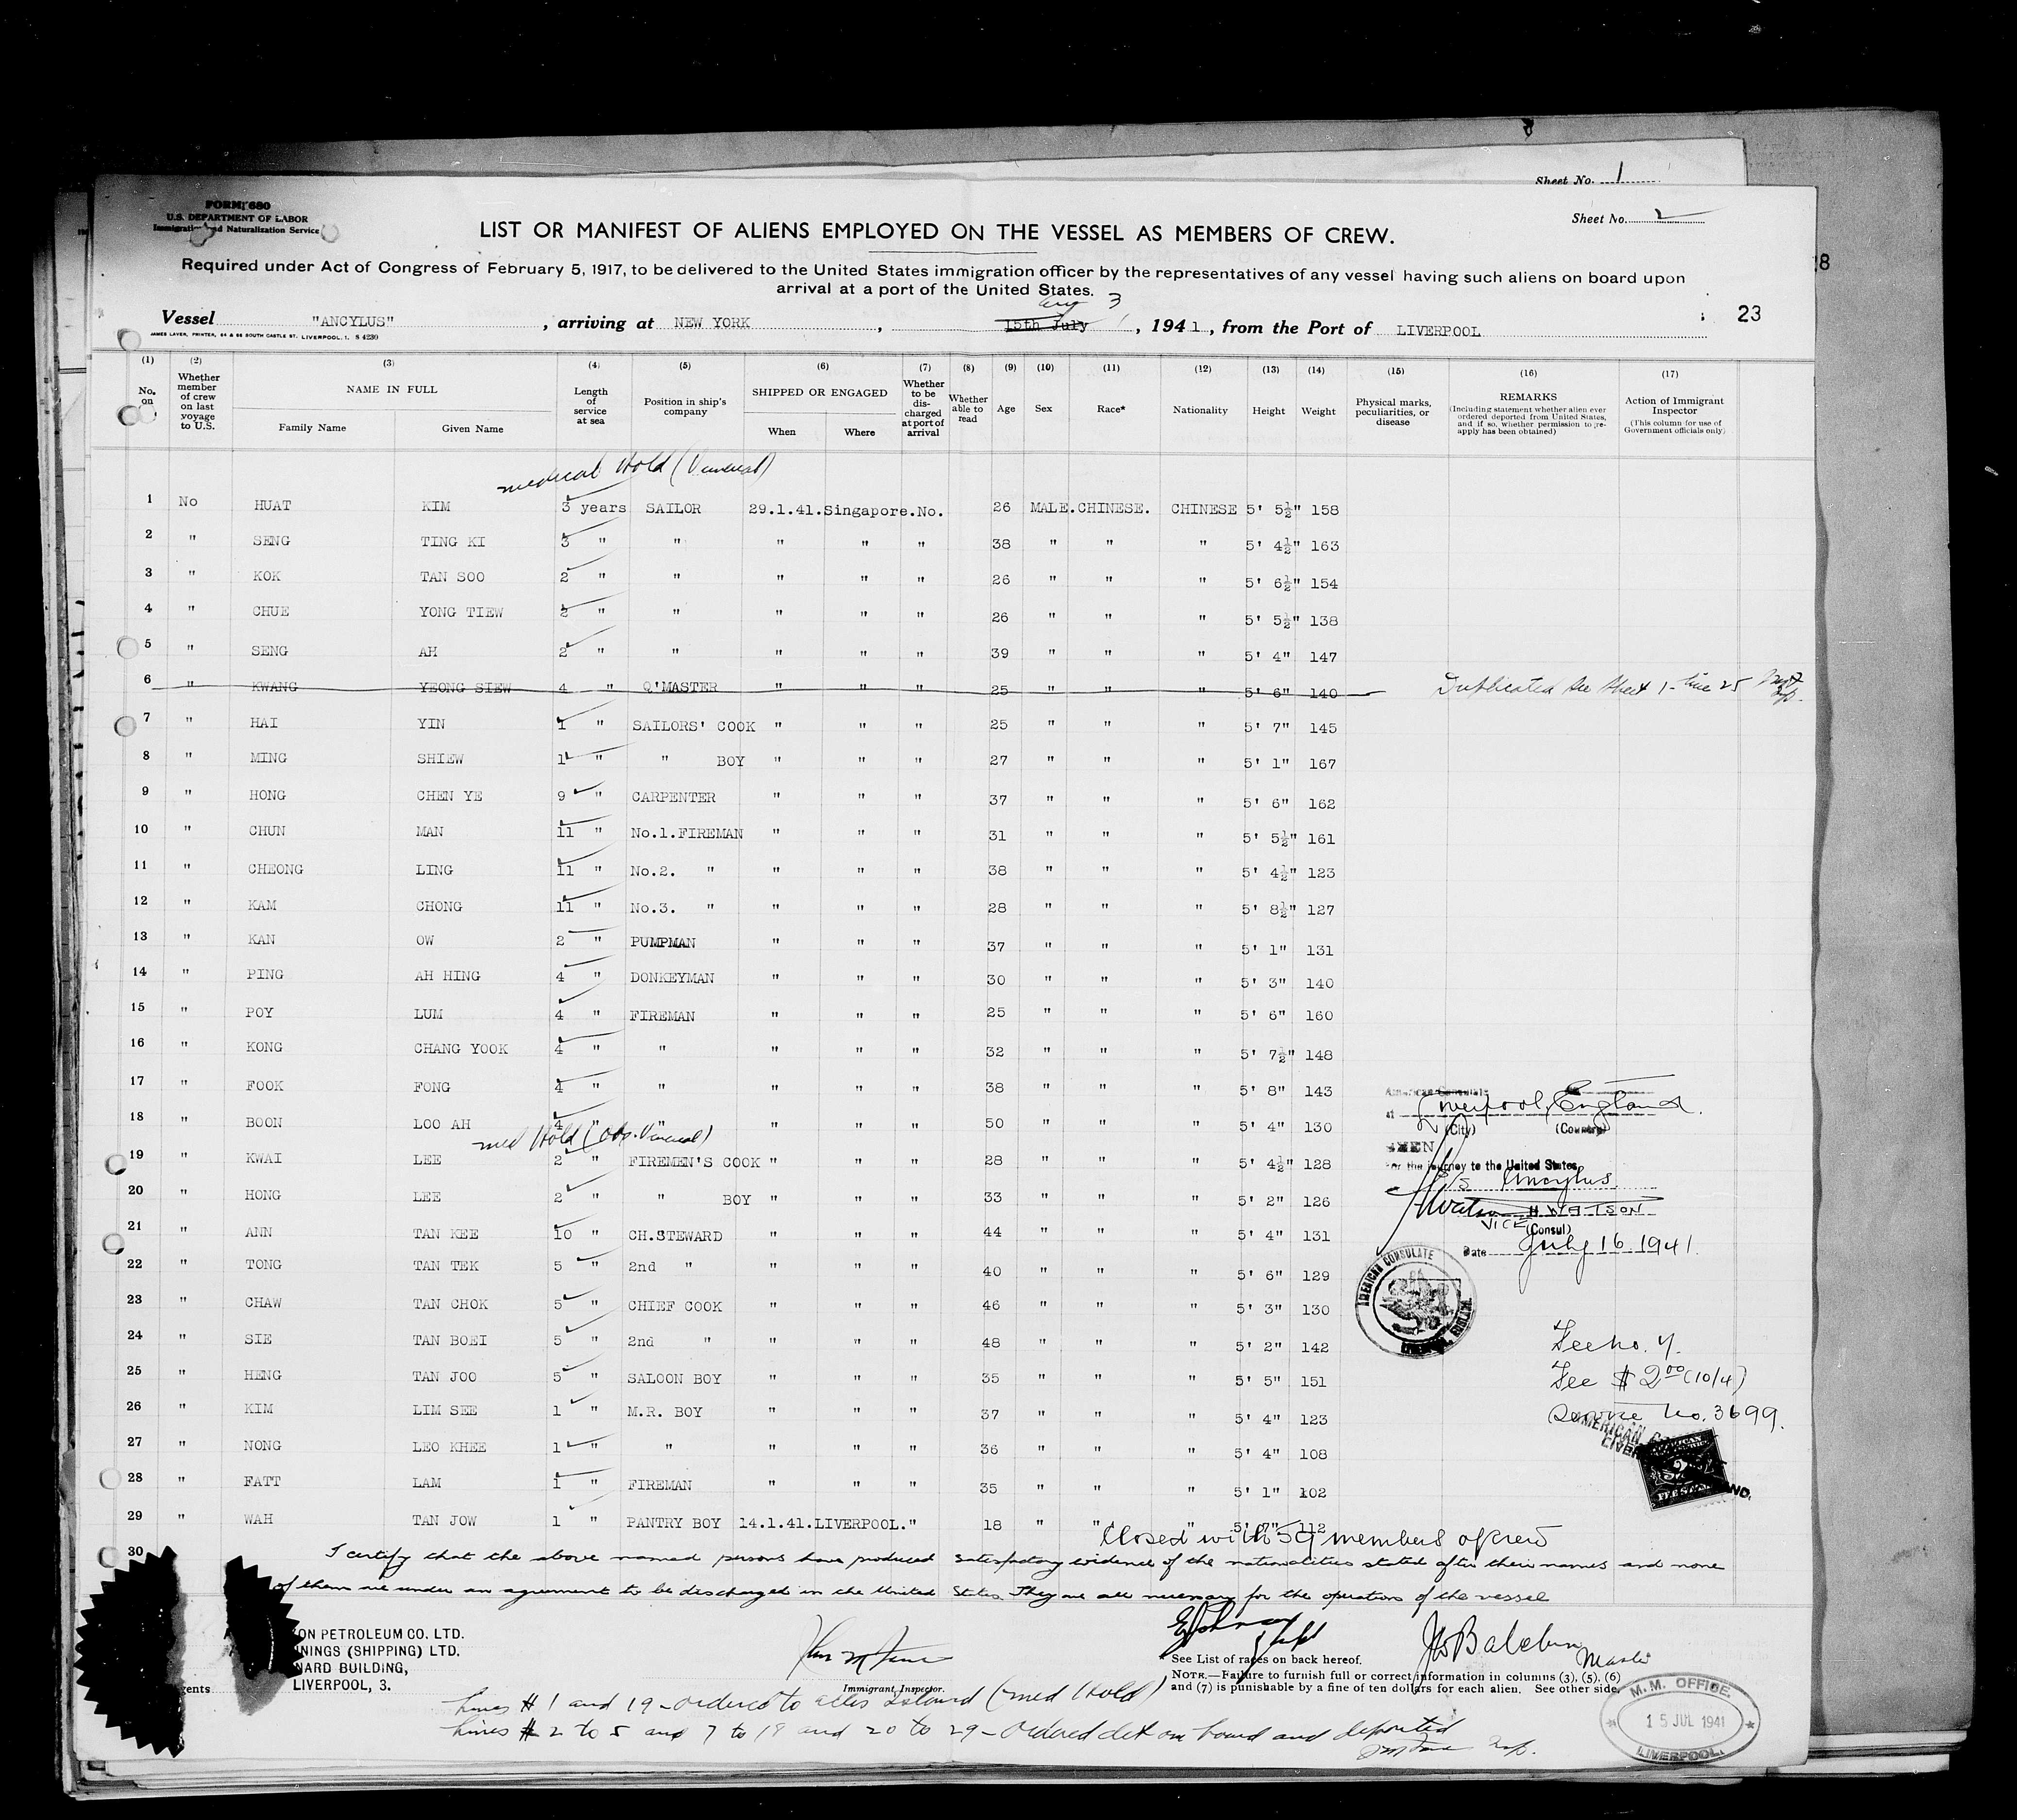 Sheet No. 1
FORM 680
U.S. DEPARTMENT OF LABOR
Immigration and Naturalization Service
Sheet No. 2
LIST OR MANIFEST OF ALIENS EMPLOYED ON THE VESSEL AS MEMBERS OF CREW.
Required under Act of Congress of February 5, 1917, to be delivered to the United States immigration officer by the representatives of any vessel having such aliens on board upon
arrival at a port of the United States.
Aug 3
Vessel "ANCYLUS", arriving at NEW YORK, 15th July, 1941, from the Port of LIVERPOOL
23
JAMES LAVER, PRINTER, 64 & 66 SOUTH CASTLE ST. LIVERPOOL, 1. S 4230
(1) (2) (3) (4) (5) (6) (7) (8) (9) (10) (11) (12) (13) (14) (15) (16) (17)
No. on
Whether member of crew on last voyage to U.S.
NAME IN FULL
Family Name Given Name
Length of service at sea
Position in ship's company
SHIPPED OR ENGAGED
When Where
Whether to be discharged at port of arrival
Whether able to read
Age
Sex
Race*
Nationality
Height
Weight
Physical marks, peculiarities, or disease
REMARKS
(Including statement whether alien ever ordered deported from United States, and if so, whether permission to re-apply has been obtained)
Action of Immigrant Inspector
(This column for use of Government officials only)
medical Hold (Venereal)
1 No HUAT KIM 3 years SAILOR 29.1.41. Singapore. No. 26 MALE. CHINESE. CHINESE 5' 5½" 158
2 " SENG TING KI 3 " " " " " 38 " " " 5' 4½" 163
3 " KOK TAN SOO 2 " " " " " 26 " " " 5' 6½" 154
4 " CHUE YONG TIEW 2 " " " " " 26 " " " 5' 5½" 138
5 " SENG AH 2 " " " " " 39 " " " 5' 4" 147
6 " KWANG YEONG SIEW 4 " Q'MASTER " " " 25 " " " 5' 6" 140 Duplicated see sheet 1 - line 25
7 " HAI YIN 1 " SAILORS' COOK " " " 25 " " " 5' 7" 145
8 " MING SHIEW 1 " " BOY " " " 27 " " " 5' 1" 167
9 " HONG CHEN YE 9 " CARPENTER " " " 37 " " " 5' 6" 162
10 " CHUN MAN 11 " No.1.FIREMAN " " " 31 " " " 5' 5½" 161
11 " CHEONG LING 11 " No.2. " " " " 38 " " " 5' 4½" 123
12 " KAM CHONG 11 " No.3. " " " " 28 " " " 5' 8½" 127
13 " KAN OW 2 " PUMPMAN " " " 37 " " " 5' 1" 131
14 " PING AH HING 4 " DONKEYMAN " " " 30 " " " 5' 3" 140
15 " POY LUM 4 " FIREMAN " " " 25 " " " 5' 6" 160
16 " KONG CHANG YOOK 4 " " " " " 32 " " " 5' 7½" 148
17 " FOOK FONG 4 " " " " " 38 " " " 5' 8" 143
18 " BOON LOO AH 4 " " " " " 50 " " " 5' 4" 130
med Hold (obs. Venereal)
19 " KWAI LEE 2 " FIREMEN'S COOK " " " 28 " " " 5' 4½" 128
20 " HONG LEE 2 " " BOY " " " 33 " " " 5' 2" 126
21 " ANN TAN KEE 10 " CH.STEWARD " " " 44 " " " 5' 4" 131
22 " TONG TAN TEK 5 " 2nd " " " " 40 " " " 5' 6" 129
23 " CHAW TAN CHOK 5 " CHIEF COOK " " " 46 " " " 5' 3" 130
24 " SIE TAN BOEI 5 " 2nd " " " " 48 " " " 5' 2" 142
25 " HENG TAN JOO 5 " SALOON BOY " " " 35 " " " 5' 5" 151
26 " KIM LIM SEE 1 " M.R. BOY " " " 37 " " " 5' 4" 123
27 " NONG LEO KHEE 1 " " " " " 36 " " " 5' 4" 108
28 " FATT LAM 1 " FIREMAN " " " 35 " " " 5' 1" 102
29 " WAH TAN JOW 1 " PANTRY BOY 14.1.41. LIVERPOOL. " 18 " " " 5' 7" 112
30
American Consulate
at Liverpool, England.
(City) (Country)
SEEN
For the journey to the United States
S/S Ancylus
H. WATSON
VICE (Consul)
Date July 16 1941.
AMERICAN CONSULATE
Fee No. 4.
Fee $2.00 (10/4)
Service No. 3699.
Closed with 59 members of crew
I certify that the above named persons have produced satisfactory evidence of the nationalities stated after their names and none
of them are under an agreement to be discharged in the United States. They are all necessary for the operation of the vessel
ON PETROLEUM CO. LTD.
NNINGS (SHIPPING) LTD.
NARD BUILDING,
LIVERPOOL, 3.
gents
Immigrant Inspector.
Baldwin
Master
* See List of races on back hereof.
NOTE.—Failure to furnish full or correct information in columns (3), (5), (6)
and (7) is punishable by a fine of ten dollars for each alien. See other side.
Lines # 1 and 19 - ordered to Ellis Island (med Hold)
Lines # 2 to 5 and 7 to 18 and 20 to 29 - ordered det on board and deported
M.M. OFFICE.
15 JUL 1941
LIVERPOOL.